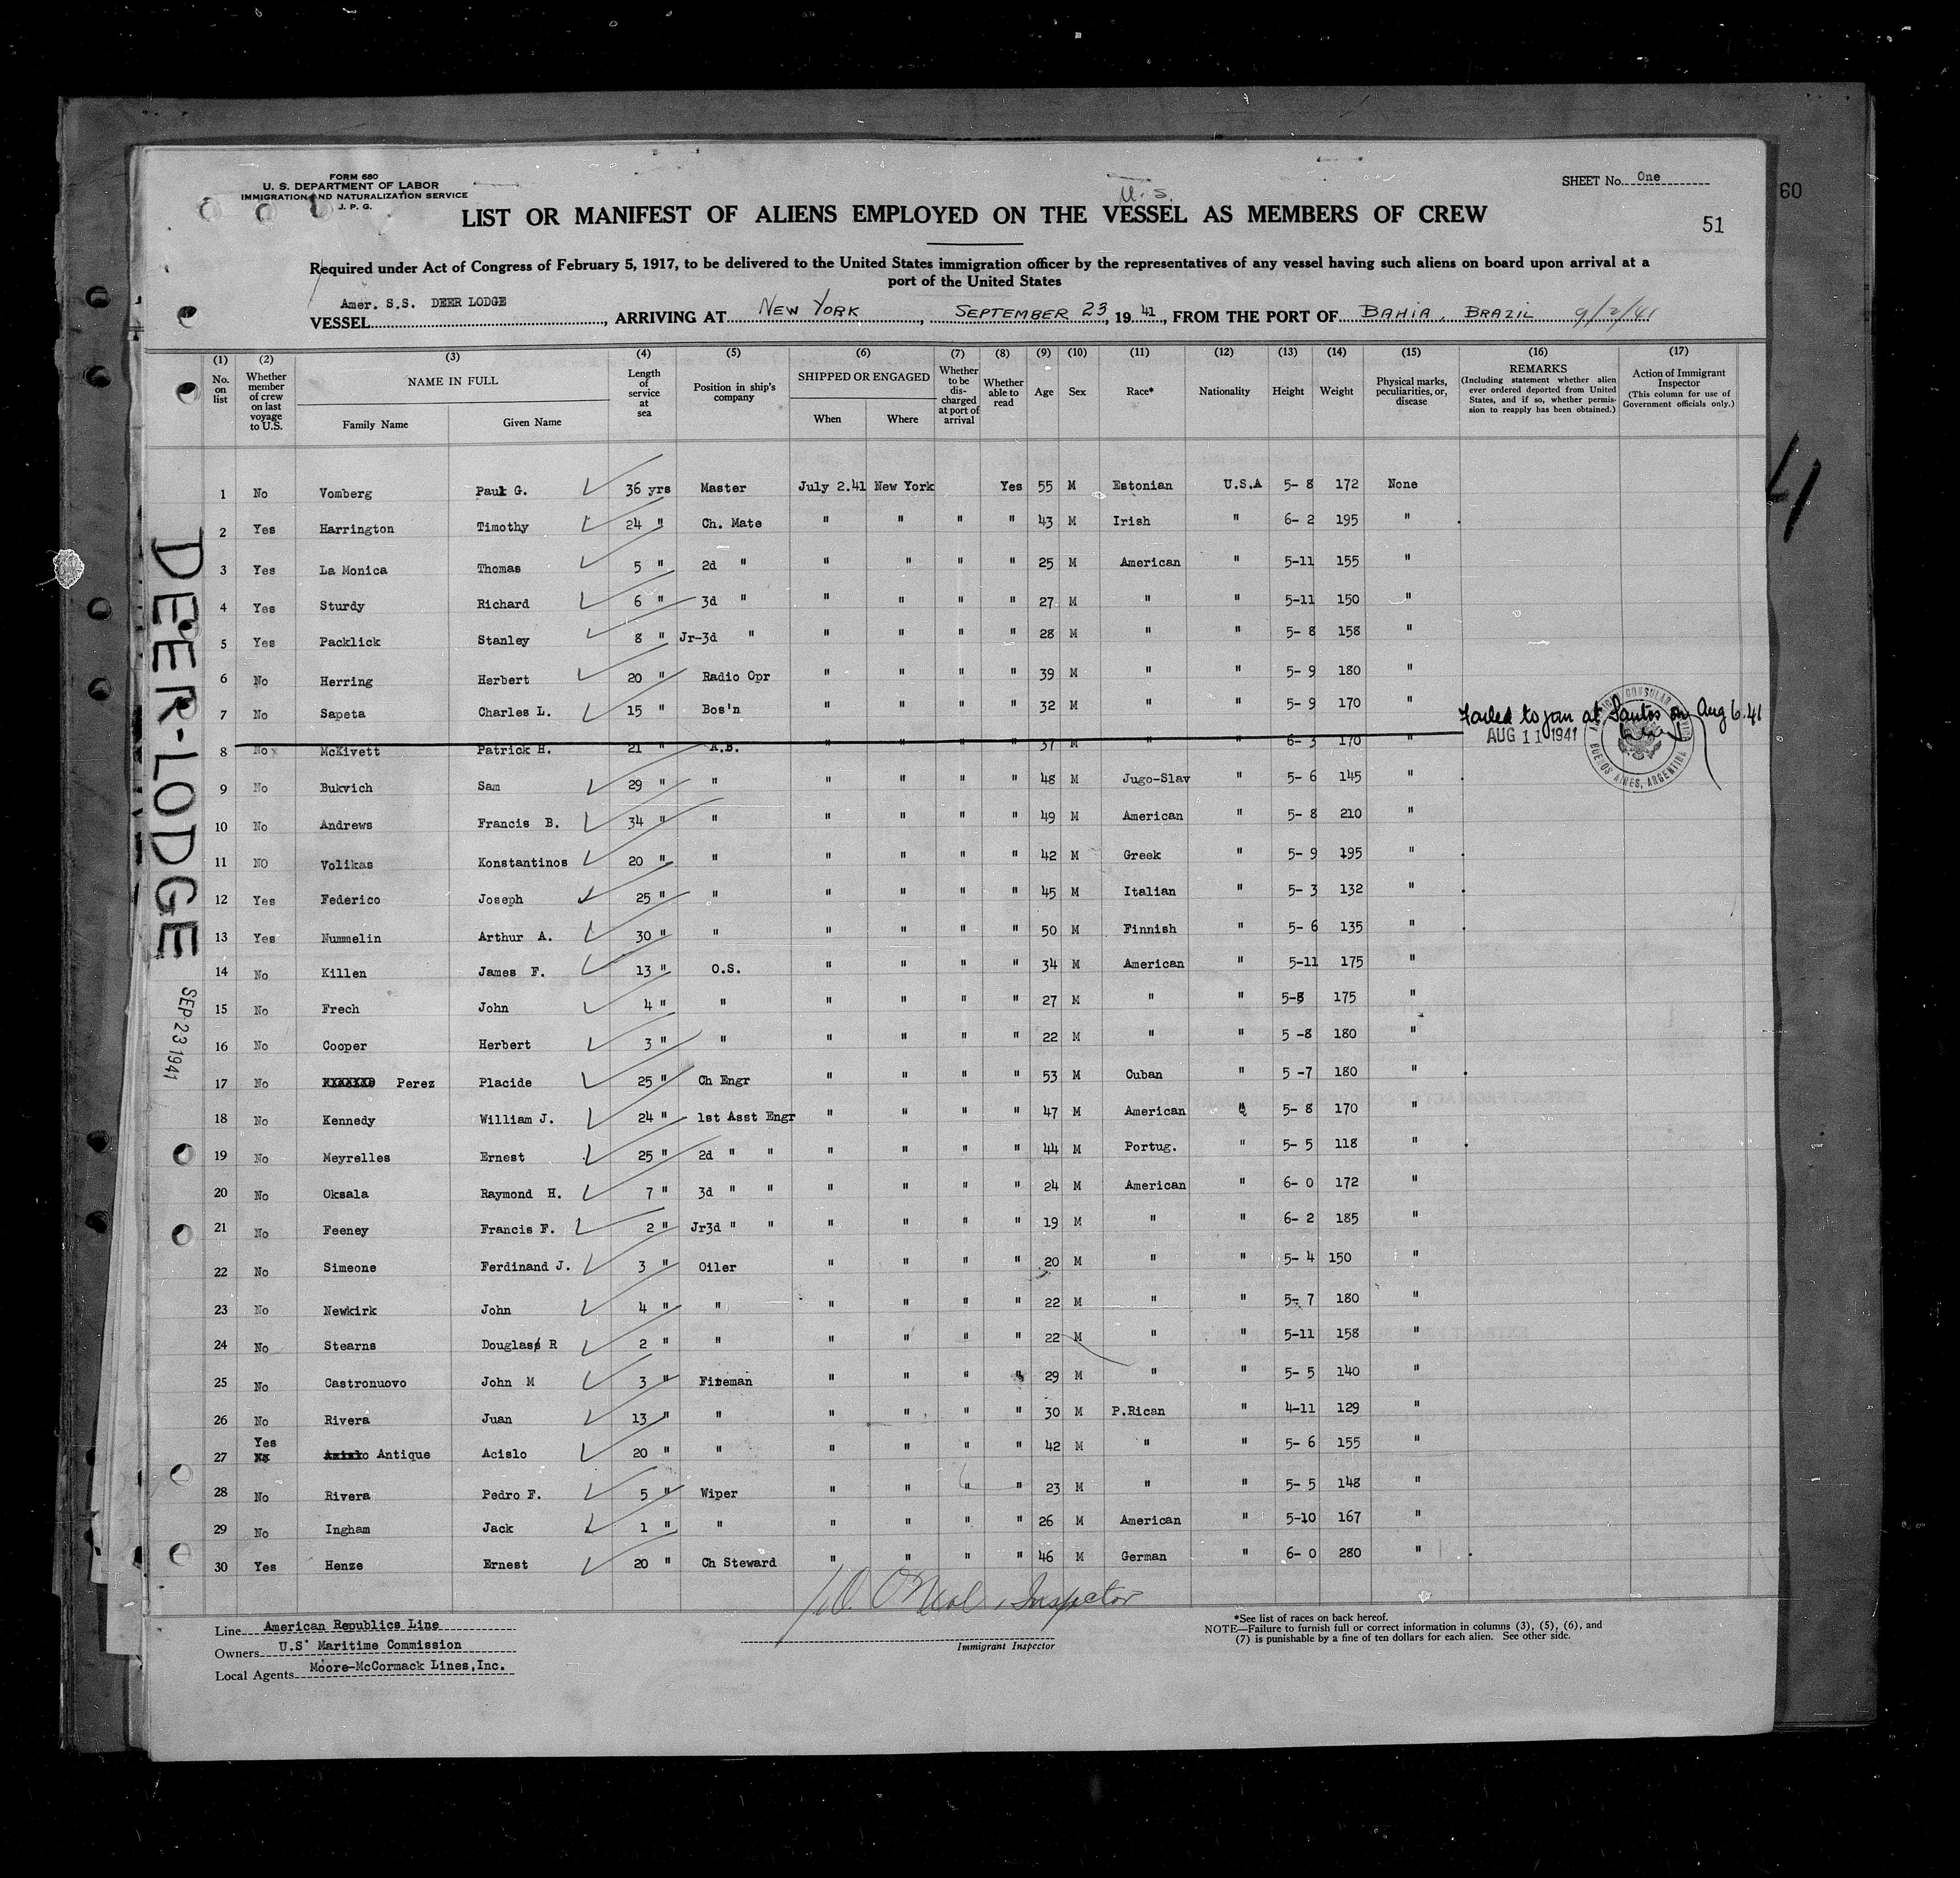 FORM 680
U. S. DEPARTMENT OF LABOR
IMMIGRATION AND NATURALIZATION SERVICE
J. P. G.
SHEET No. One
60
U. S.
LIST OR MANIFEST OF ALIENS EMPLOYED ON THE VESSEL AS MEMBERS OF CREW
51
Required under Act of Congress of February 5, 1917, to be delivered to the United States immigration officer by the representatives of any vessel having such aliens on board upon arrival at a
port of the United States
VESSEL Amer. S.S. DEER LODGE, ARRIVING AT NEW YORK, SEPTEMBER 23, 1941, FROM THE PORT OF BAHIA, BRAZIL 9/2/41
(1) (2) (3) (4) (5) (6) (7) (8) (9) (10) (11) (12) (13) (14) (15) (16) (17)
No. on list
Whether member of crew on last voyage to U.S.
NAME IN FULL
Family Name
Given Name
Length of service at sea
Position in ship's company
SHIPPED OR ENGAGED
When
Where
Whether to be discharged at port of arrival
Whether able to read
Age
Sex
Race*
Nationality
Height
Weight
Physical marks, peculiarities, or, disease
REMARKS
(Including statement whether alien ever ordered deported from United States, and if so, whether permission to reapply has been obtained.)
Action of Immigrant Inspector
(This column for use of Government officials only.)
1 No Vomberg Paul G. 36 yrs Master July 2.41 New York Yes 55 M Estonian U.S.A 5- 8 172 None
2 Yes Harrington Timothy 24 " Ch. Mate " " " " 43 M Irish " 6- 2 195 "
3 Yes La Monica Thomas 5 " 2d " " " " " 25 M American " 5-11 155 "
4 Yes Sturdy Richard 6 " 3d " " " " " 27 M " " 5-11 150 "
5 Yes Packlick Stanley 8 " Jr-3d " " " " " 28 M " " 5- 8 158 "
6 No Herring Herbert 20 " Radio Opr " " " " 39 M " " 5- 9 180 "
7 No Sapeta Charles L. 15 " Bos'n " " " " 32 M " " 5- 9 170 "
8 No x McKivett Patrick H. 21 " A.B. " " " " 37 M " " 6- 3 170 " Failed to join at Santos on Aug 6.41
AUG 11 1941
AMERICAN CONSULAR SERVICE BUENOS AIRES, ARGENTINA
9 No Bukvich Sam 29 " " " " " " 48 M Jugo-Slav " 5- 6 145 "
10 No Andrews Francis B. 34 " " " " " " 49 M American " 5- 8 210 "
11 NO Volikas Konstantinos 20 " " " " " " 42 M Greek " 5- 9 195 "
12 Yes Federico Joseph 25 " " " " " " 45 M Italian " 5- 3 132 "
13 Yes Nummelin Arthur A. 30 " " " " " " 50 M Finnish " 5- 6 135 "
14 No Killen James F. 13 " O.S. " " " " 34 M American " 5-11 175 "
15 No Frech John 4 " " " " " " 27 M " " 5-8 175 "
16 No Cooper Herbert 3 " " " " " " 22 M " " 5 -8 180 "
17 No Perez Placide 25 " Ch Engr " " " " 53 M Cuban " 5 -7 180 "
18 No Kennedy William J. 24 " 1st Asst Engr " " " " 47 M American " 5- 8 170 "
19 No Meyrelles Ernest 25 " 2d " " " " " " 44 M Portug. " 5- 5 118 "
20 No Oksala Raymond H. 7 " 3d " " " " " " 24 M American " 6- 0 172 "
21 No Feeney Francis F. 2 " Jr3d " " " " " " 19 M " " 6- 2 185 "
22 No Simeone Ferdinand J. 3 " Oiler " " " " 20 M " " 5- 4 150 "
23 No Newkirk John 4 " " " " " " 22 M " " 5- 7 180 "
24 No Stearns Douglass R 2 " " " " " " 22 M " " 5-11 158 "
25 No Castronuovo John M 3 " Fireman " " " " 29 M " " 5- 5 140 "
26 No Rivera Juan 13 " " " " " " 30 M P.Rican " 4-11 129 "
27 Yes Acislo Antique Acislo 20 " " " " " " 42 M " " 5- 6 155 "
28 No Rivera Pedro F. 5 " Wiper " " " " 23 M " " 5- 5 148 "
29 No Ingham Jack 1 " " " " " " 26 M American " 5-10 167 "
30 Yes Henze Ernest 20 " Ch Steward " " " " 46 M German " 6- 0 280 "
DEER-LODGE
SEP 23 1941
4
Line American Republics Line
Owners U.S. Maritime Commission
Local Agents Moore-McCormack Lines, Inc.
O'Neal, Inspector
Immigrant Inspector
*See list of races on back hereof.
NOTE—Failure to furnish full or correct information in columns (3), (5), (6), and
(7) is punishable by a fine of ten dollars for each alien. See other side.